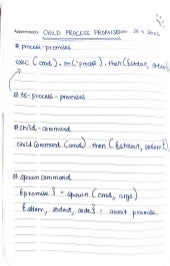 CHILD PROCESS PROMISES 26.4.2022
# process-promises
exec (cmd). on ('process'). then (
# ts-process-promises
# child-command
child Command (cmd). then ( {stdout, stderr}
# spawn command
{promise} = spawn (cmd, args)
{stderr, stdout, code} = await promise.